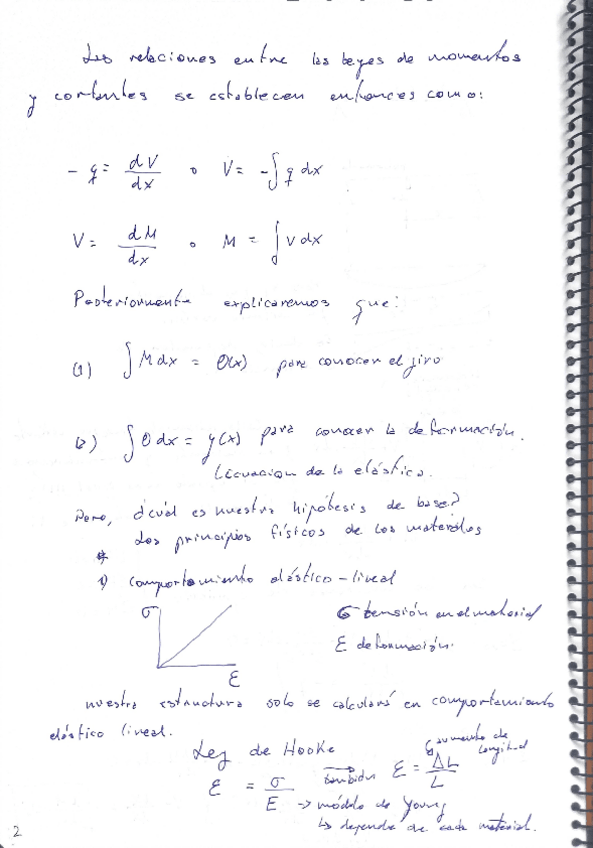 Las relaciones entre las leyes de momentos
y cortantes se establecen entonces como:
- q = dV/dx o V = -∫ q dx
V = dM/dx o M = ∫ V dx
Posteriormente explicaremos que:
(1) ∫ M dx = θ(x) para conocer el giro
(2) ∫ θ dx = y(x) para conocer la deformación.
Ecuacion de la elástica.
Pero, ¿cuál es nuestra hipótesis de base?
Los principios físicos de los materiales
1) comportamiento elástico-lineal
σ σ tensión en el material
ε deformación.
ε
nuestra estructura solo se calculará en comportamiento
elástico lineal.
Ley de Hooke aumento de longitud
ε = σ/E también ε = ΔL/L
→ módulo de Young
↳ depende de cada material.
2